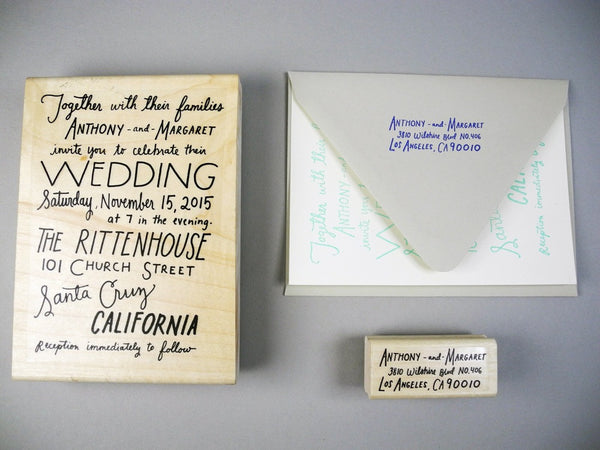 Together with their families
ANTHONY -and- MARGARET
invite you to celebrate their
WEDDING
Saturday, November 15, 2015
at 7 in the evening.
THE RITTENHOUSE
101 CHURCH STREET
Santa Cruz
CALIFORNIA
Reception immediately to follow
ANTHONY -and- MARGARET
3810 Wilshire Blvd NO.406
LOS ANGELES, CA 90010
Together with their
ANTHONY
invite you
W
Santa
CALI
Reception immediately
ANTHONY -and- MARGARET
3810 Wilshire Blvd NO.406
LOS ANGELES, CA 90010